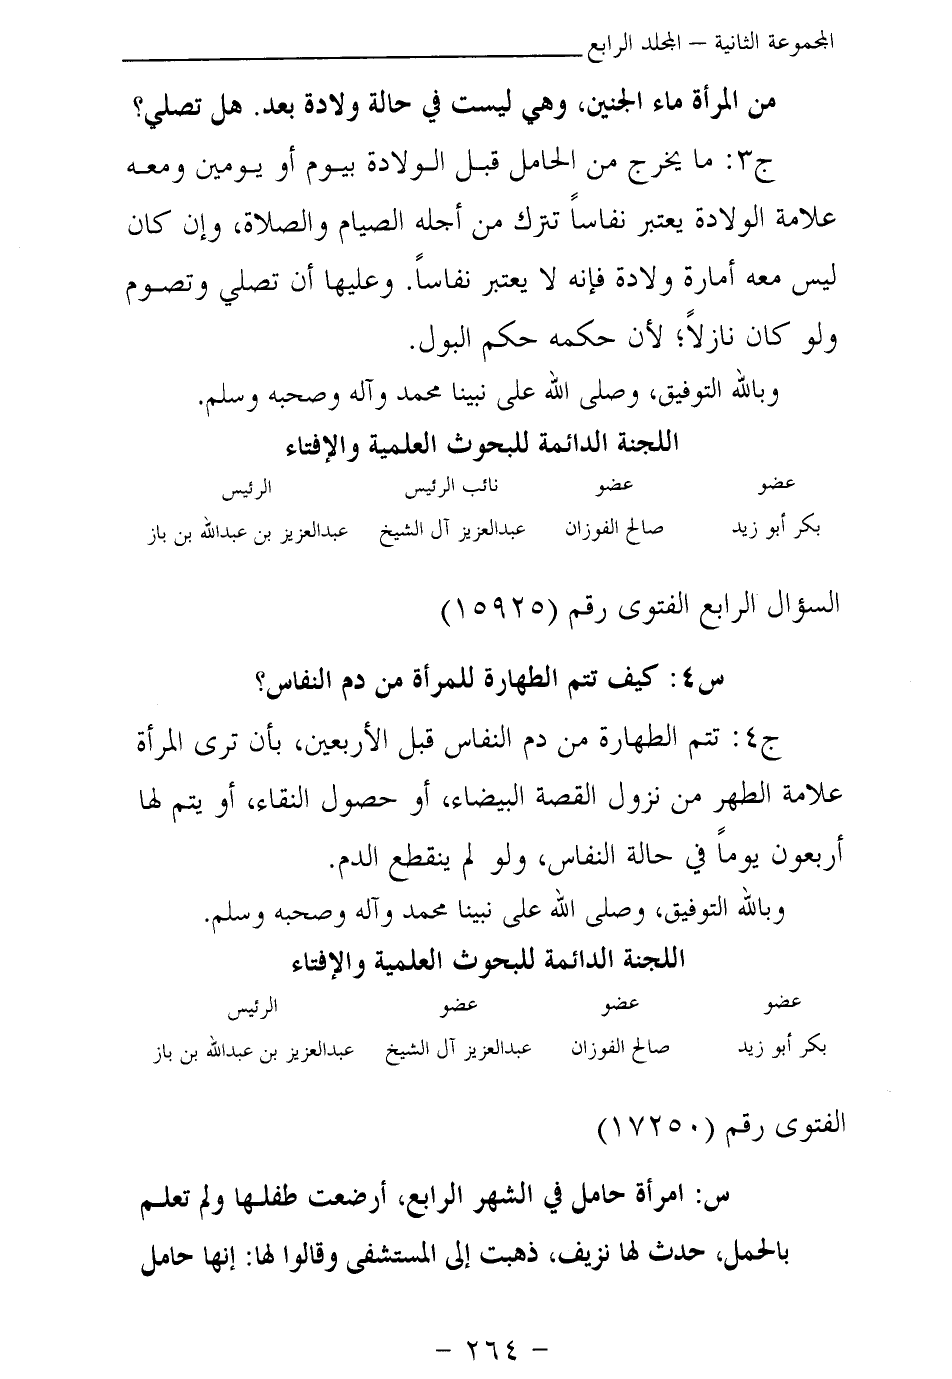 المجموعة الثانية – المجلد الرابع
من المرأة ماء الجنين، وهي ليست في حالة ولادة بعد. هل تصلي؟
ج٣: ما يخرج من الحامل قبل الولادة بيوم أو يومين ومعه
علامة الولادة يعتبر نفاساً تترك من أجله الصيام والصلاة، وإن كان
ليس معه أمارة ولادة فإنه لا يعتبر نفاساً. وعليها أن تصلي وتصوم
ولو كان نازلاً؛ لأن حكمه حكم البول.
وبالله التوفيق، وصلى الله على نبينا محمد وآله وصحبه وسلم.
اللجنة الدائمة للبحوث العلمية والإفتاء
عضو عضو نائب الرئيس الرئيس
بكر أبو زيد صالح الفوزان عبدالعزيز آل الشيخ عبدالعزيز بن عبدالله بن باز
السؤال الرابع الفتوى رقم (١٥٩٢٥)
س٤: كيف تتم الطهارة للمرأة من دم النفاس؟
ج٤: تتم الطهارة من دم النفاس قبل الأربعين، بأن ترى المرأة
علامة الطهر من نزول القصة البيضاء، أو حصول النقاء، أو يتم لها
أربعون يوماً في حالة النفاس، ولو لم ينقطع الدم.
وبالله التوفيق، وصلى الله على نبينا محمد وآله وصحبه وسلم.
اللجنة الدائمة للبحوث العلمية والإفتاء
عضو عضو عضو الرئيس
بكر أبو زيد صالح الفوزان عبدالعزيز آل الشيخ عبدالعزيز بن عبدالله بن باز
الفتوى رقم (١٧٢٥٠)
س: امرأة حامل في الشهر الرابع، أرضعت طفلها ولم تعلم
بالحمل، حدث لها نزيف، ذهبت إلى المستشفى وقالوا لها: إنها حامل
– ٢٦٤ –